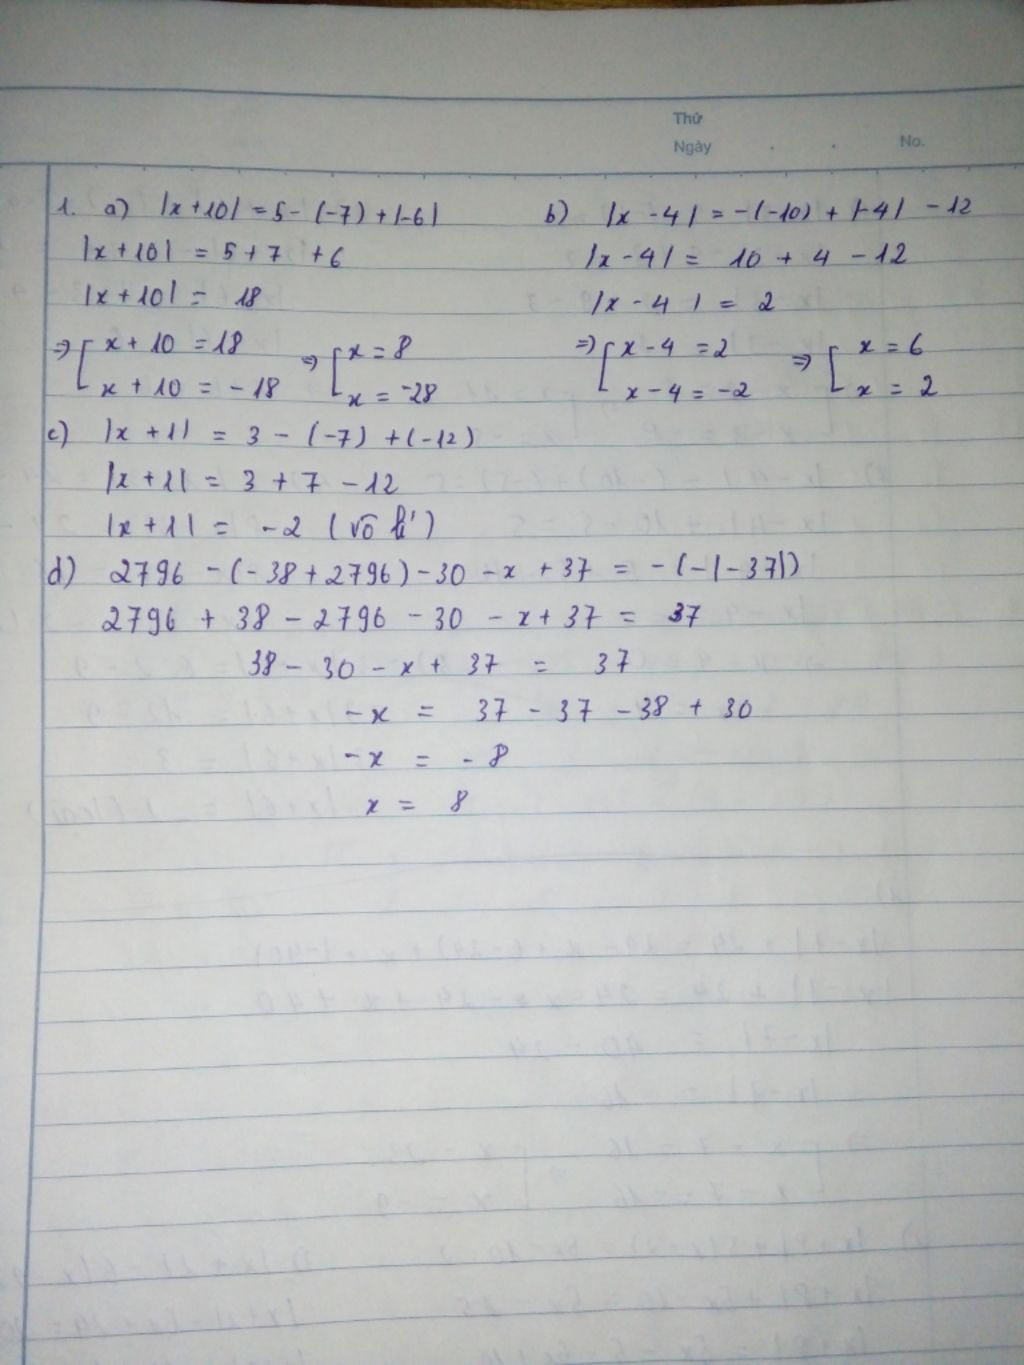 Thứ
Ngày . . No.
1. a) |x + 10| = 5 - (-7) + |-6|
|x + 10| = 5 + 7 + 6
|x + 10| = 18
=> [ x + 10 = 18 => [ x = 8
x + 10 = -18 x = -28
b) |x - 4| = -(-10) + |-4| - 12
|x - 4| = 10 + 4 - 12
|x - 4| = 2
=> [ x - 4 = 2 => [ x = 6
x - 4 = -2 x = 2
c) |x + 1| = 3 - (-7) + (-12)
|x + 1| = 3 + 7 - 12
|x + 1| = -2 (vô lí)
d) 2796 - (-38 + 2796) - 30 - x + 37 = -(-|-37|)
2796 + 38 - 2796 - 30 - x + 37 = 37
38 - 30 - x + 37 = 37
-x = 37 - 37 - 38 + 30
-x = -8
x = 8